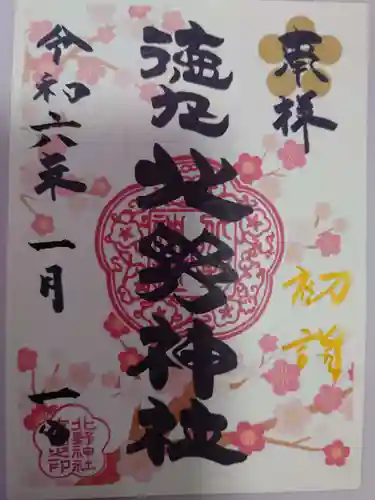 奉拝
初詣
徳丸
北野神社
令和六年 一月 一日
北野神社